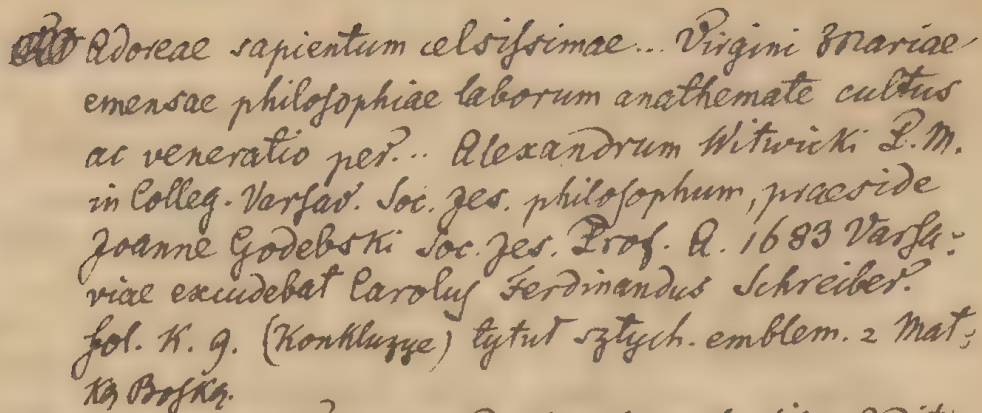 Adoreae sapientum celsissimae... Virgini Mariae
emensae philosophiae laborum anathemate cultus
ac veneratio per... Alexandrum Witwicki P.M.
in Colleg. Varsav. Soc. Jes. philosophum, praeside
Joanne Godebski Soc. Jes. Prof. A. 1683 Varsa-
viae excudebat Carolus Ferdinandus Schreiber.
fol. K. 9. (Konkluzye) tytuł sztych. emblem. z Mat-
ką Boską.